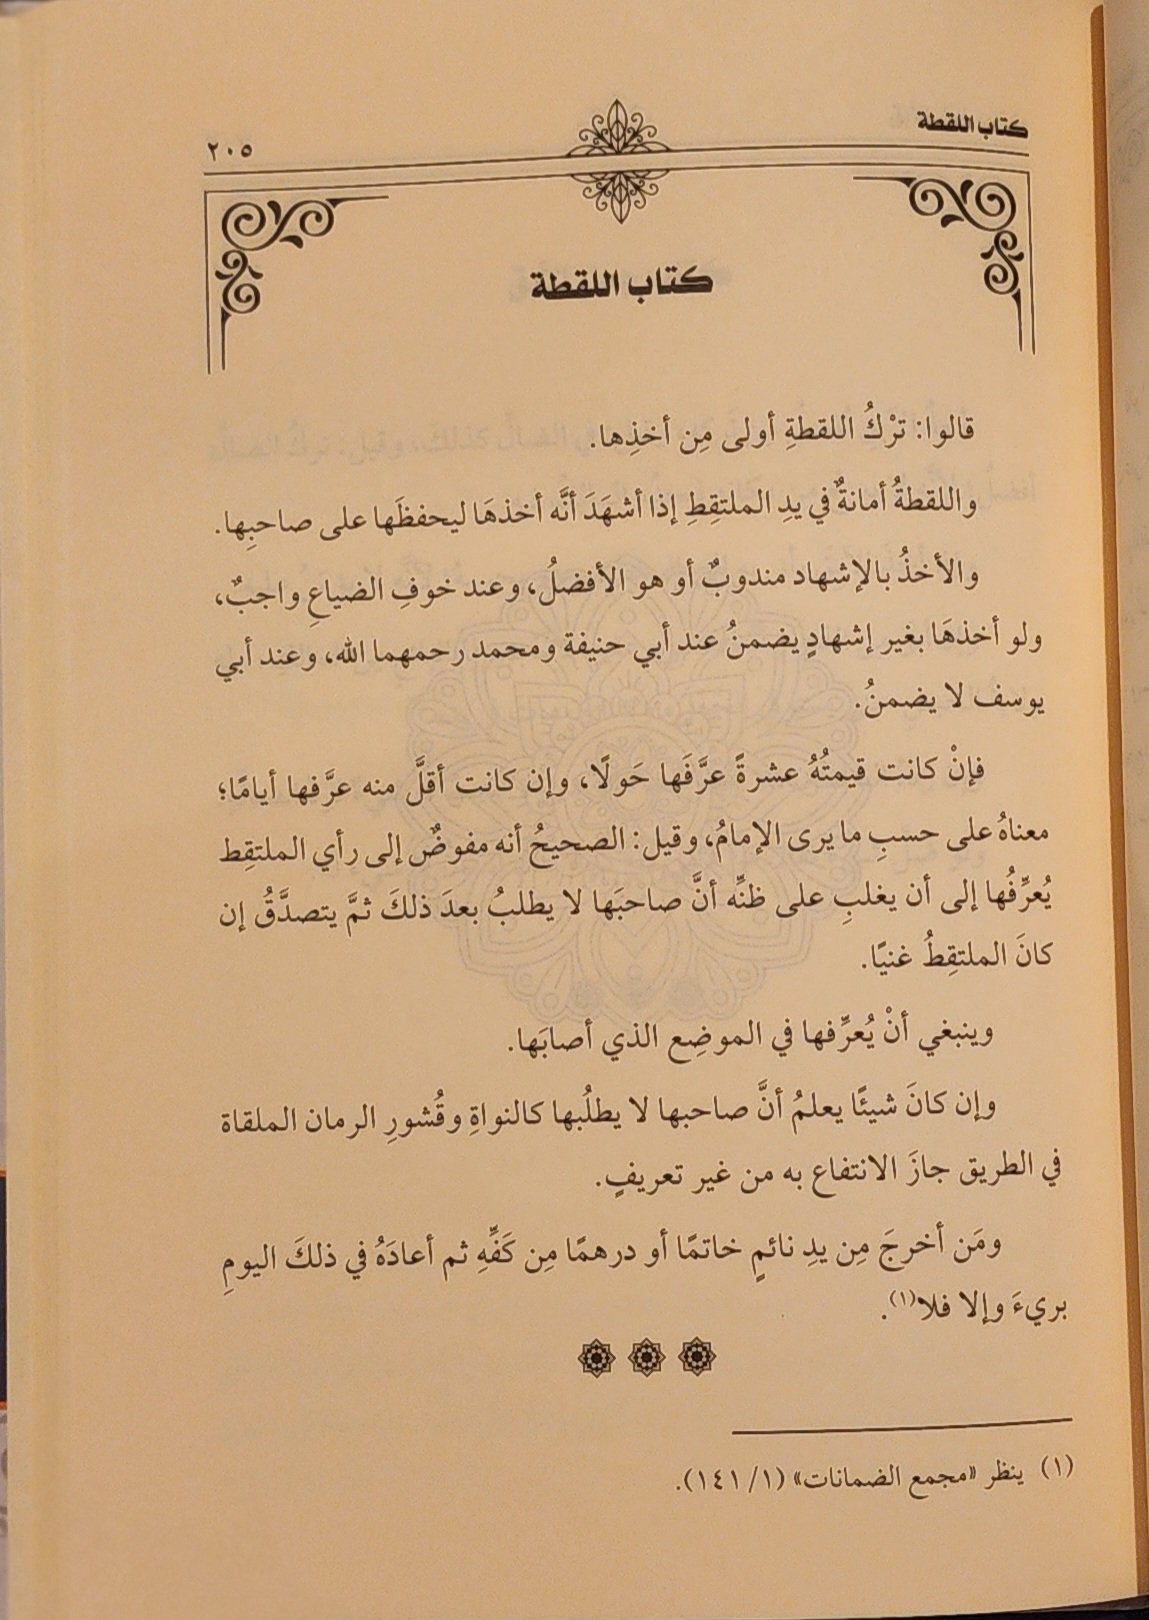 كتاب اللقطة
٢٠٥
كتاب اللقطة
قالوا: ترْكُ اللقطةِ أولى مِن أخذِها.
واللقطةُ أمانةٌ في يدِ الملتقِطِ إذا أشهَدَ أنَّه أخذهَا ليحفظَها على صاحبِها.
والأخذُ بالإشهاد مندوبٌ أو هو الأفضلُ، وعند خوفِ الضياعِ واجبٌ،
ولو أخذهَا بغير إشهادٍ يضمنُ عند أبي حنيفة ومحمد رحمهما الله، وعند أبي
يوسف لا يضمنُ.
فإنْ كانت قيمتُهُ عشرةً عرَّفَها حَولًا، وإن كانت أقلَّ منه عرَّفها أيامًا؛
معناهُ على حسبِ ما يرى الإمامُ، وقيل: الصحيحُ أنه مفوضٌ إلى رأي الملتقِط
يُعرِّفُها إلى أن يغلبِ على ظنِّه أنَّ صاحبَها لا يطلبُ بعدَ ذلكَ ثمَّ يتصدَّقُ إن
كانَ الملتقِطُ غنيًا.
وينبغي أنْ يُعرِّفها في الموضِع الذي أصابَها.
وإن كانَ شيئًا يعلمُ أنَّ صاحبها لا يطلُبها كالنواةِ وقُشورِ الرمان الملقاة
في الطريق جازَ الانتفاع به من غير تعريفٍ.
ومَن أخرجَ مِن يدِ نائمٍ خاتمًا أو درهمًا مِن كَفِّهِ ثم أعادَهُ في ذلكَ اليومِ
بريءَ وإلا فلا(١).
(١) ينظر «مجمع الضمانات» (١/ ١٤١).